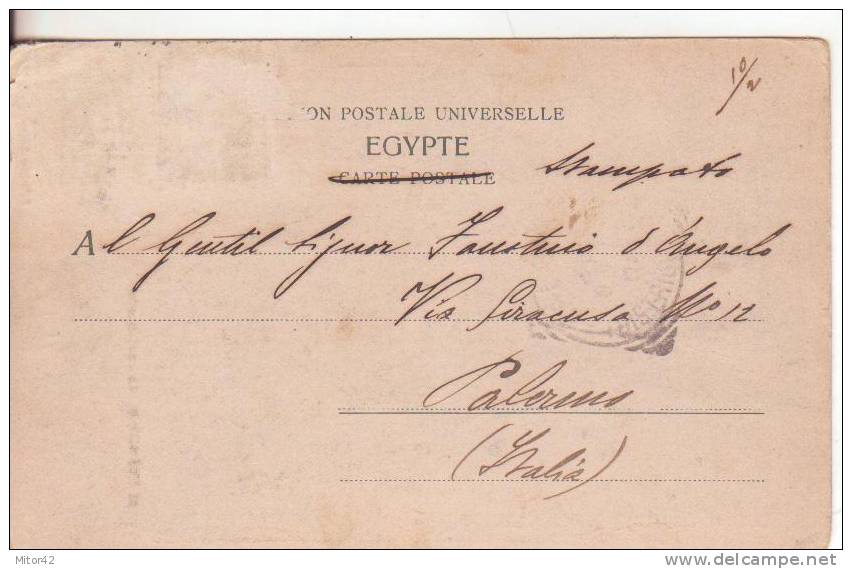 10/2
ION POSTALE UNIVERSELLE
EGYPTE
CARTE POSTALE Stampato
Al Gentil Signor Faustino d'Angelo
Via Siracusa No 12
Palermo
(Italia)
Mitor42
delcampe.net